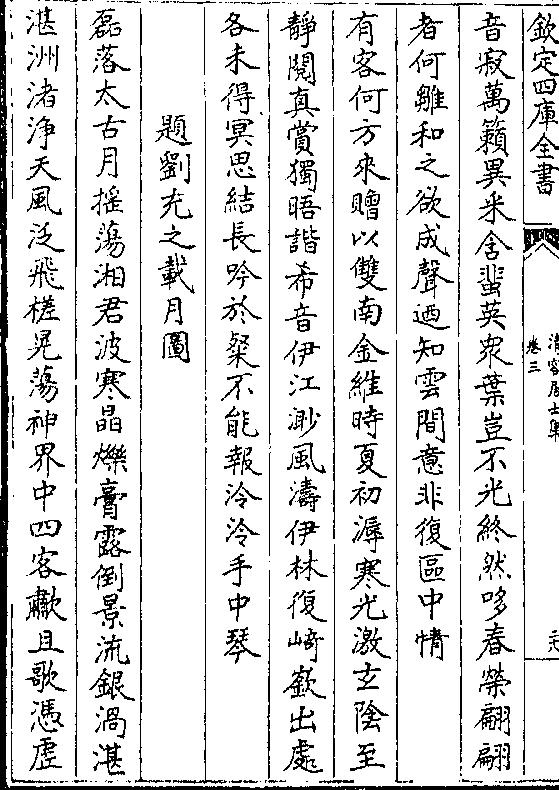 欽定四庫全書
清容居士集
卷三
音寂萬籟異采含蜚英衆葉豈不光終然哆春榮翩翩
者何雛和之欲成聲迺知雲間意非復區中情
有客何方來贈以雙南金維時夏初潯寒光激玄陰至
靜閱真賞獨晤諧希音伊江渺風濤伊林復﨑嶔出處
各未得冥思結長吟於粲不能報泠泠手中琴
題劉充之載月圖
磊落太古月摇蕩湘君波寒晶爍膏露倒景流銀渦湛
湛洲渚浄天風泛飛槎晃蕩神界中四客歗且歌憑虚